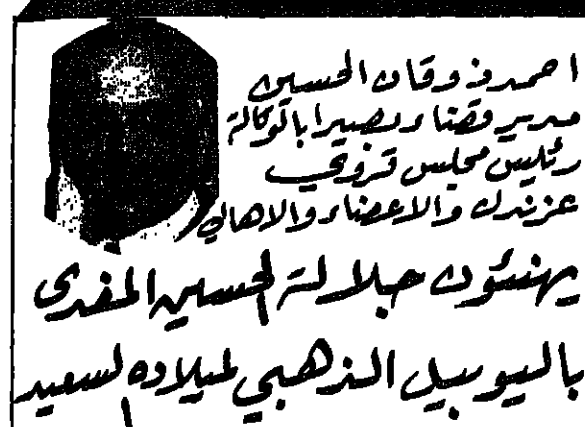 احمد ذوقان الحسين
مدير قضاء بصيرا بالوكالة
رئيس مجلس قروي
غرندل والاعضاء والاهالي
يهنئون جلالة الحسين المفدى
باليوبيل الذهبي لميلاده السعيد